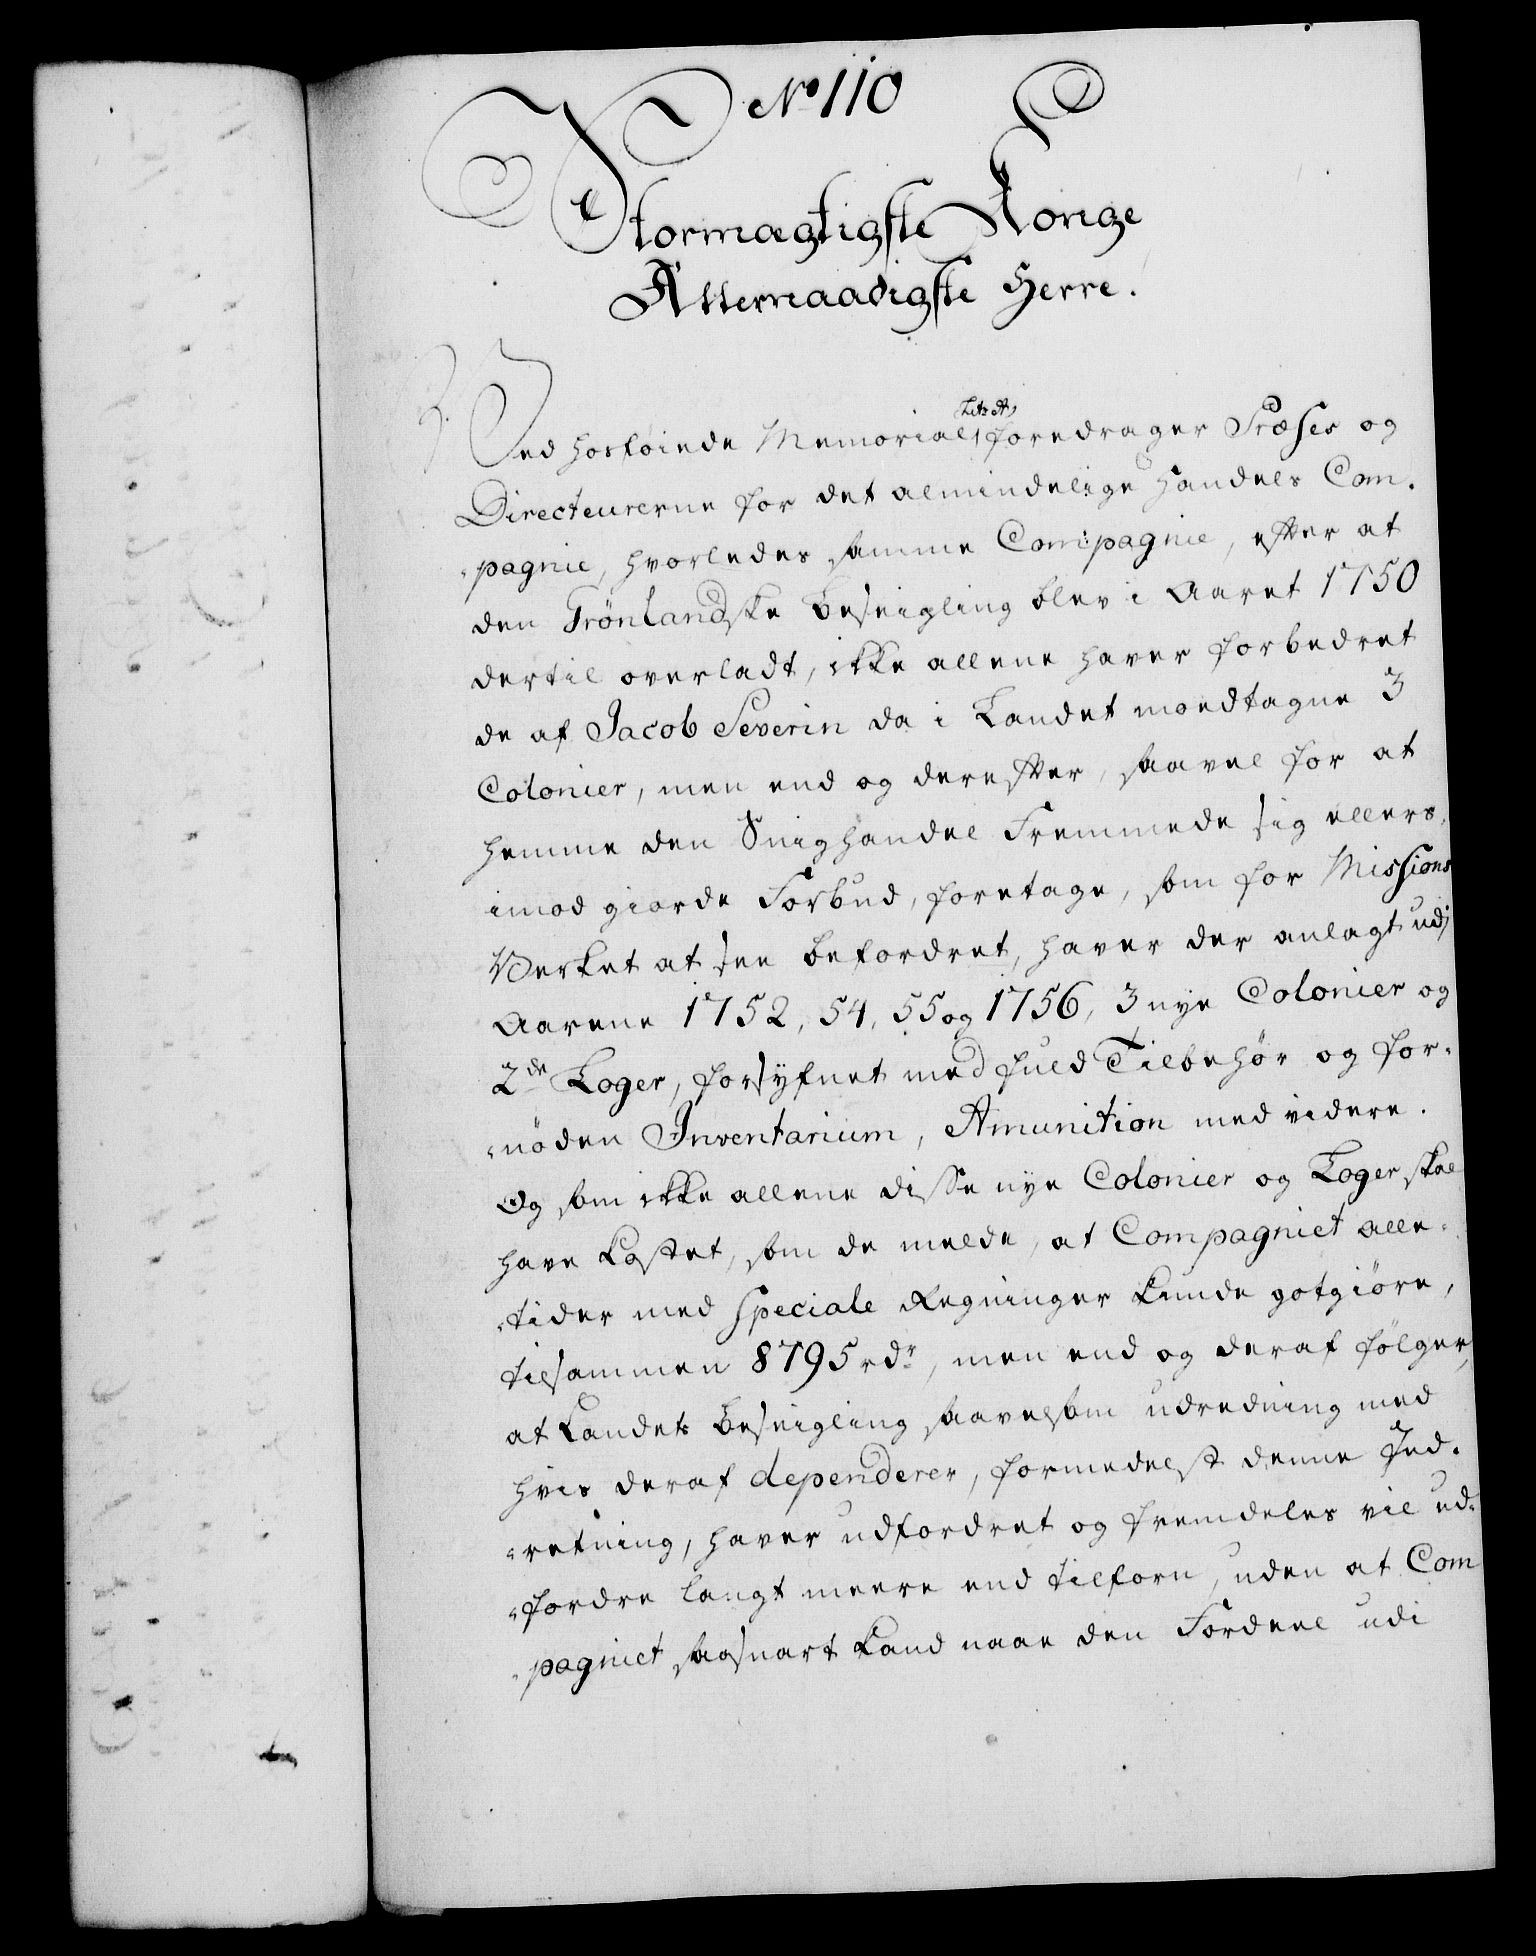 No 110
Stormægtigste Konge
Allernaadigste Herre.
Ved hosføiede Memorial Litr: A, foredrager Præses og
Directeurerne for det almindelige Handels Com-
-pagnie, hvorledes samme Compagnie, efter at
den Grönlandske Beseigling blev i Aaret 1750
dertil overladt, ikke allene haver forbedret
de af Jacob Severin da i Landet modtagne 3
Colonier, men end og derefter, saavel for at
hemme den Snighandel Fremmede sig ellers,
imod giorde Forbud, foretage, som for Missions
Verket at see befordret, haver der anlagt udj
Aarene 1752, 54, 55 og 1756, 3 nye Colonier og
2de Loger, forsÿfnet med fuld Tilbehör og for-
-nöden Inventarium, Amunition med videre.
Og som ikke allene disse nye Colonier og Loger skal
have kostet, som de melde, at Compagniet alle-
-tider med speciale Regninger kunde gotgiöre,
tilsammen 8795 rdr, men end og deraf fölger,
at Landets Beseigling saavelsom udredning med
hvis deraf dependerer, formedelst denne Ind-
-retning, haver udfordret og fremdeles vil ud-
-fordre langt meere end tilforn, uden at Com
-pagniet saasnart kand naae den Fordeel udi